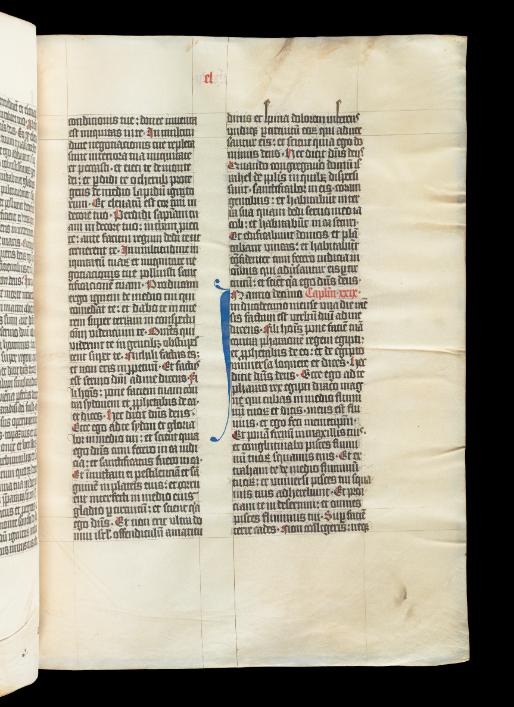 el
conditionis tue: donec inuenta
est iniquitas in te. In multitu
dine negotiationis tue repleta
sunt interiora tua iniquitate
et peccasti: et eieci te de monte
dei: et perdidi te o cherub prote
gens de medio lapidum ignito
rum. Et eleuatum est cor tuum in
decore tuo. Perdidisti sapientiam tu
am in decore tuo: in terram proieci
te: ante faciem regum dedi te ut
cernerent te. In multitudine ini
quitatum tuarum et iniquitate ne
gotiationis tue polluisti sancti
ficationem tuam. Producam
ergo ignem de medio tui qui
comedat te: et dabo te in cine
rem super terram in conspectu
omnium videntium te. Omnes qui
viderint te in gentibus obstupes
cent super te. Nichili factus es:
et non eris in perpetuum. Et factus
est sermo domini ad me dicens. Fi
li hominis: pone faciem tuam contra
sydonem et prophetabis de ea:
et dices. Hec dicit dominus deus.
Ecce ego ad te sydon et glorifica
bor in medio tui: et scient quia
ego dominus cum fecero in ea iudi
cia: et sanctificatus fuero in ea.
Et immittam ei pestilentiam et san
guinem in plateis eius: et corru
ent interfecti in medio eius
gladio per circuitum: et scient quia
ego dominus. Et non erit ultra do
mui israel offendiculum amaritu
dinis et spina dolorem inferens
undique per circuitum eorum qui aduer
santur eis: et scient quia ego do
minus deus. Hec dicit dominus deus.
Quando congregauero domum isra
hel de populis in quibus dispersi
sunt: sanctificabor in eis coram
gentibus: et habitabunt in ter
ra sua quam dedi seruo meo ia
cob: et habitabunt in ea securi.
Et edificabunt domos et plan
tabunt vineas: et habitabunt
confidenter cum fecero iudicia in
omnibus qui aduersantur eis per cir
cuitum: et scient quia ego dominus deus
In anno decimo Capitulum xxix.
in duodecimo mense una die mensis
factum est verbum domini ad me
dicens. Fili hominis pone faciem tuam
contra pharaonem regem egipti:
et prophetabis de eo: et de egipto
uniuersa loquere et dices. Hec
dicit dominus deus. Ecce ego ad te
pharao rex egipti draco mag
ne qui cubas in medio fluminum
tuorum et dicis. meus est flu
uius: et ego feci memetipsum.
Et ponam frenum in maxillis tuis
et conglutinabo pisces flumi
num tuorum squamis tuis. Et ex
traham te de medio fluminum
tuorum: et uniuersi pisces tui squa
mis tuis adherebunt. Et proi
ciam te in desertum: et omnes
pisces fluminis tui. Super faciem
terre cades. Non colligeris: neque